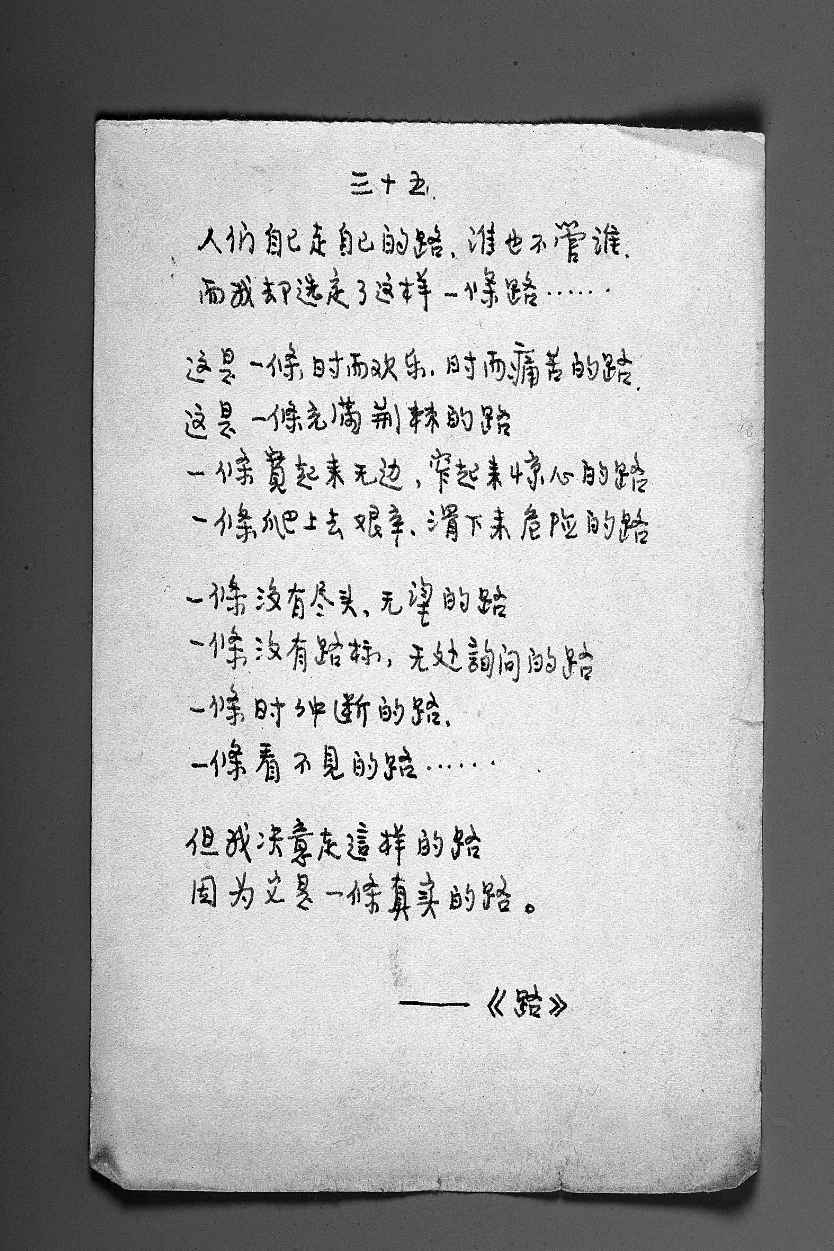 三十五.
人们自己走自己的路、谁也不管谁.
而我却选定了这样一條路……
这是一條时而欢乐、时而痛苦的路.
这是一條充满荆棘的路
一條寛起来无边、窄起来惊心的路
一條爬上去艰辛、滑下来危险的路
一條没有尽头、无望的路
一條没有路标、无处詢问的路
一條时时中断的路、
一條看不見的路……
但我决意走這样的路
因为它是一條真实的路。
——《路》